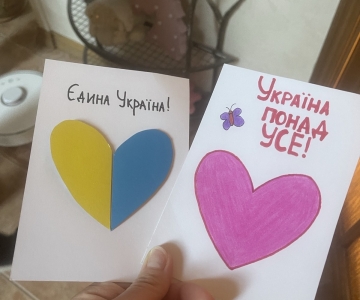 Єдина Україна!
Україна
понад
усе!